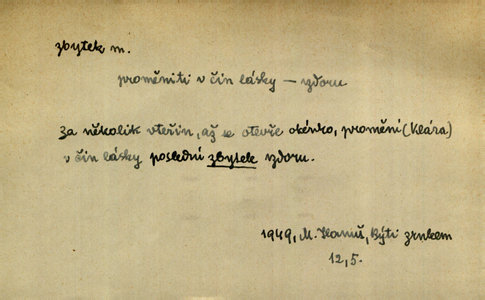 zbytek m.
proměniti v čin lásky — vzdoru
Za několik vteřin, až se otevře okénko, promění (Klára)
v čin lásky poslední zbytek vzdoru.
1949, M. Hanuš, Býti zrnkem
12,5.